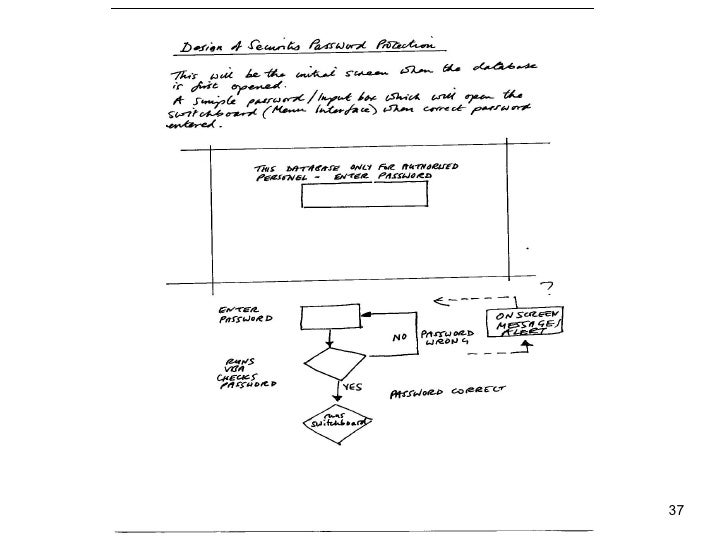 Design A Security Password Protection
This will be the initial screen when the database
is first opened.
A simple password/Input box which will open the
switchboard (Menu Interface) when correct password
entered.
THIS DATABASE ONLY FOR AUTHORISED
PERSONEL - ENTER PASSWORD
?
ENTER
PASSWORD
ON SCREEN
MESSAGES/
ALERT
NO
PASSWORD
WRONG
RUNS
VBA
CHECKS
PASSWORD
YES
PASSWORD CORRECT
runs
switchboard
37